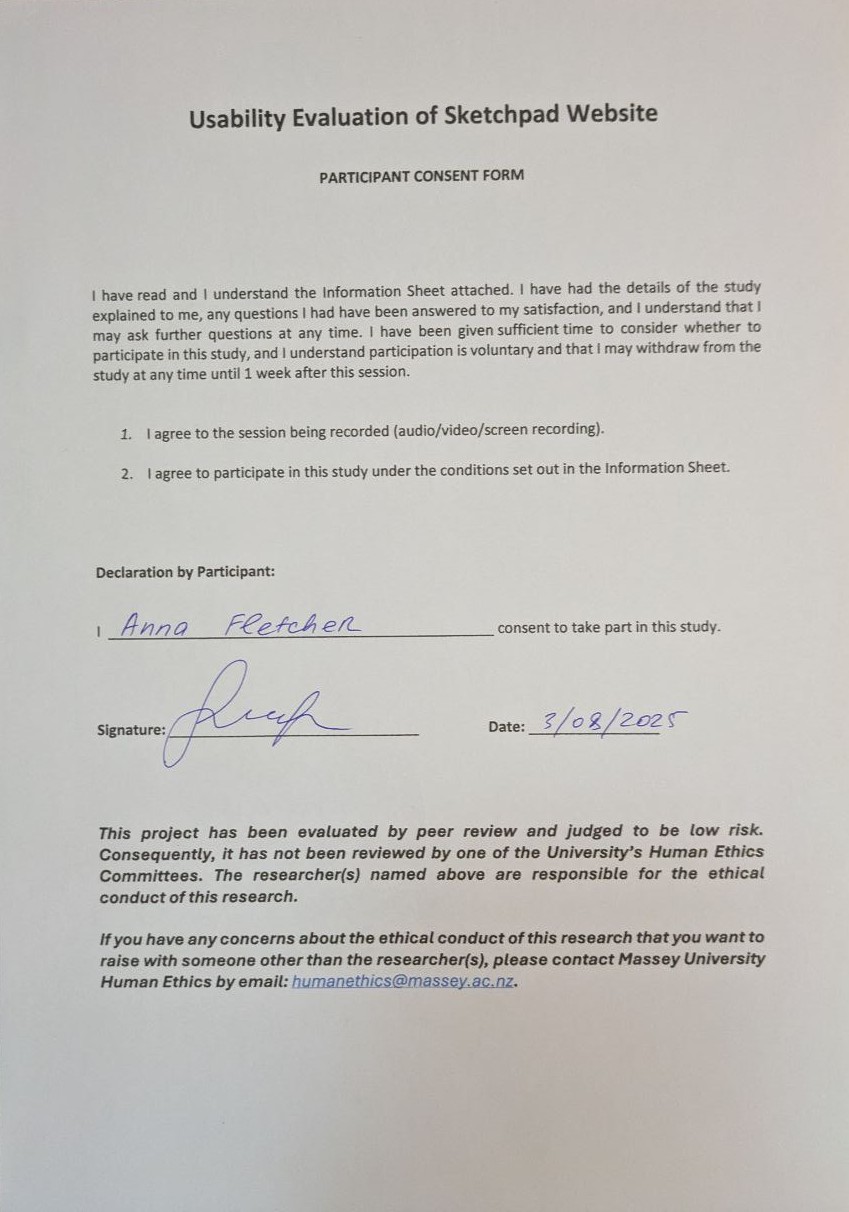 Usability Evaluation of Sketchpad Website
PARTICIPANT CONSENT FORM
I have read and I understand the Information Sheet attached. I have had the details of the study
explained to me, any questions I had have been answered to my satisfaction, and I understand that I
may ask further questions at any time. I have been given sufficient time to consider whether to
participate in this study, and I understand participation is voluntary and that I may withdraw from the
study at any time until 1 week after this session.
1. I agree to the session being recorded (audio/video/screen recording).
2. I agree to participate in this study under the conditions set out in the Information Sheet.
Declaration by Participant:
I Anna Fletcher consent to take part in this study.
Signature: Date: 3/08/2025
This project has been evaluated by peer review and judged to be low risk.
Consequently, it has not been reviewed by one of the University's Human Ethics
Committees. The researcher(s) named above are responsible for the ethical
conduct of this research.
If you have any concerns about the ethical conduct of this research that you want to
raise with someone other than the researcher(s), please contact Massey University
Human Ethics by email: humanethics@massey.ac.nz.